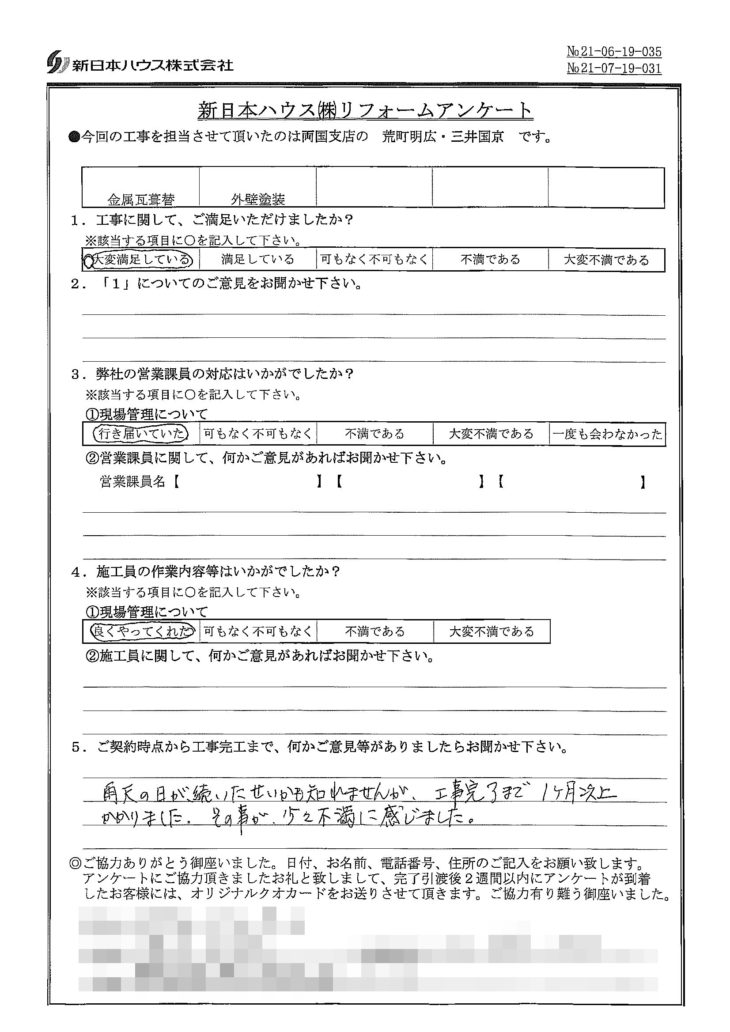 新日本ハウス株式会社
№21-06-19-035
№21-07-19-031
新日本ハウス㈱リフォームアンケート
●今回の工事を担当させて頂いたのは両国支店の　荒町明広・三井国京　です。
金属瓦葺替　外壁塗装
１．工事に関して、ご満足いただけましたか？
※該当する項目に〇を記入して下さい。
大変満足している　満足している　可もなく不可もなく　不満である　大変不満である
２．「１」についてのご意見をお聞かせ下さい。
３．弊社の営業課員の対応はいかがでしたか？
※該当する項目に〇を記入して下さい。
①現場管理について
行き届いていた　可もなく不可もなく　不満である　大変不満である　一度も会わなかった
②営業課員に関して、何かご意見があればお聞かせ下さい。
営業課員名【　　　】【　　　】【　　　】
４．施工員の作業内容等はいかがでしたか？
※該当する項目に〇を記入して下さい。
①現場管理について
良くやってくれた　可もなく不可もなく　不満である　大変不満である
②施工員に関して、何かご意見があればお聞かせ下さい。
５．ご契約時点から工事完工まで、何かご意見等がありましたらお聞かせ下さい。
雨天の日が、続いたせいかも知れませんが、工事完了まで1ヶ月以上
かかりました。その事が、少々不満に感じました。
◎ご協力ありがとう御座いました。日付、お名前、電話番号、住所のご記入をお願い致します。
アンケートにご協力頂きましたお礼と致しまして、完了引渡後２週間以内にアンケートが到着
したお客様には、オリジナルクオカードをお送りさせて頂きます。ご協力有り難う御座いました。